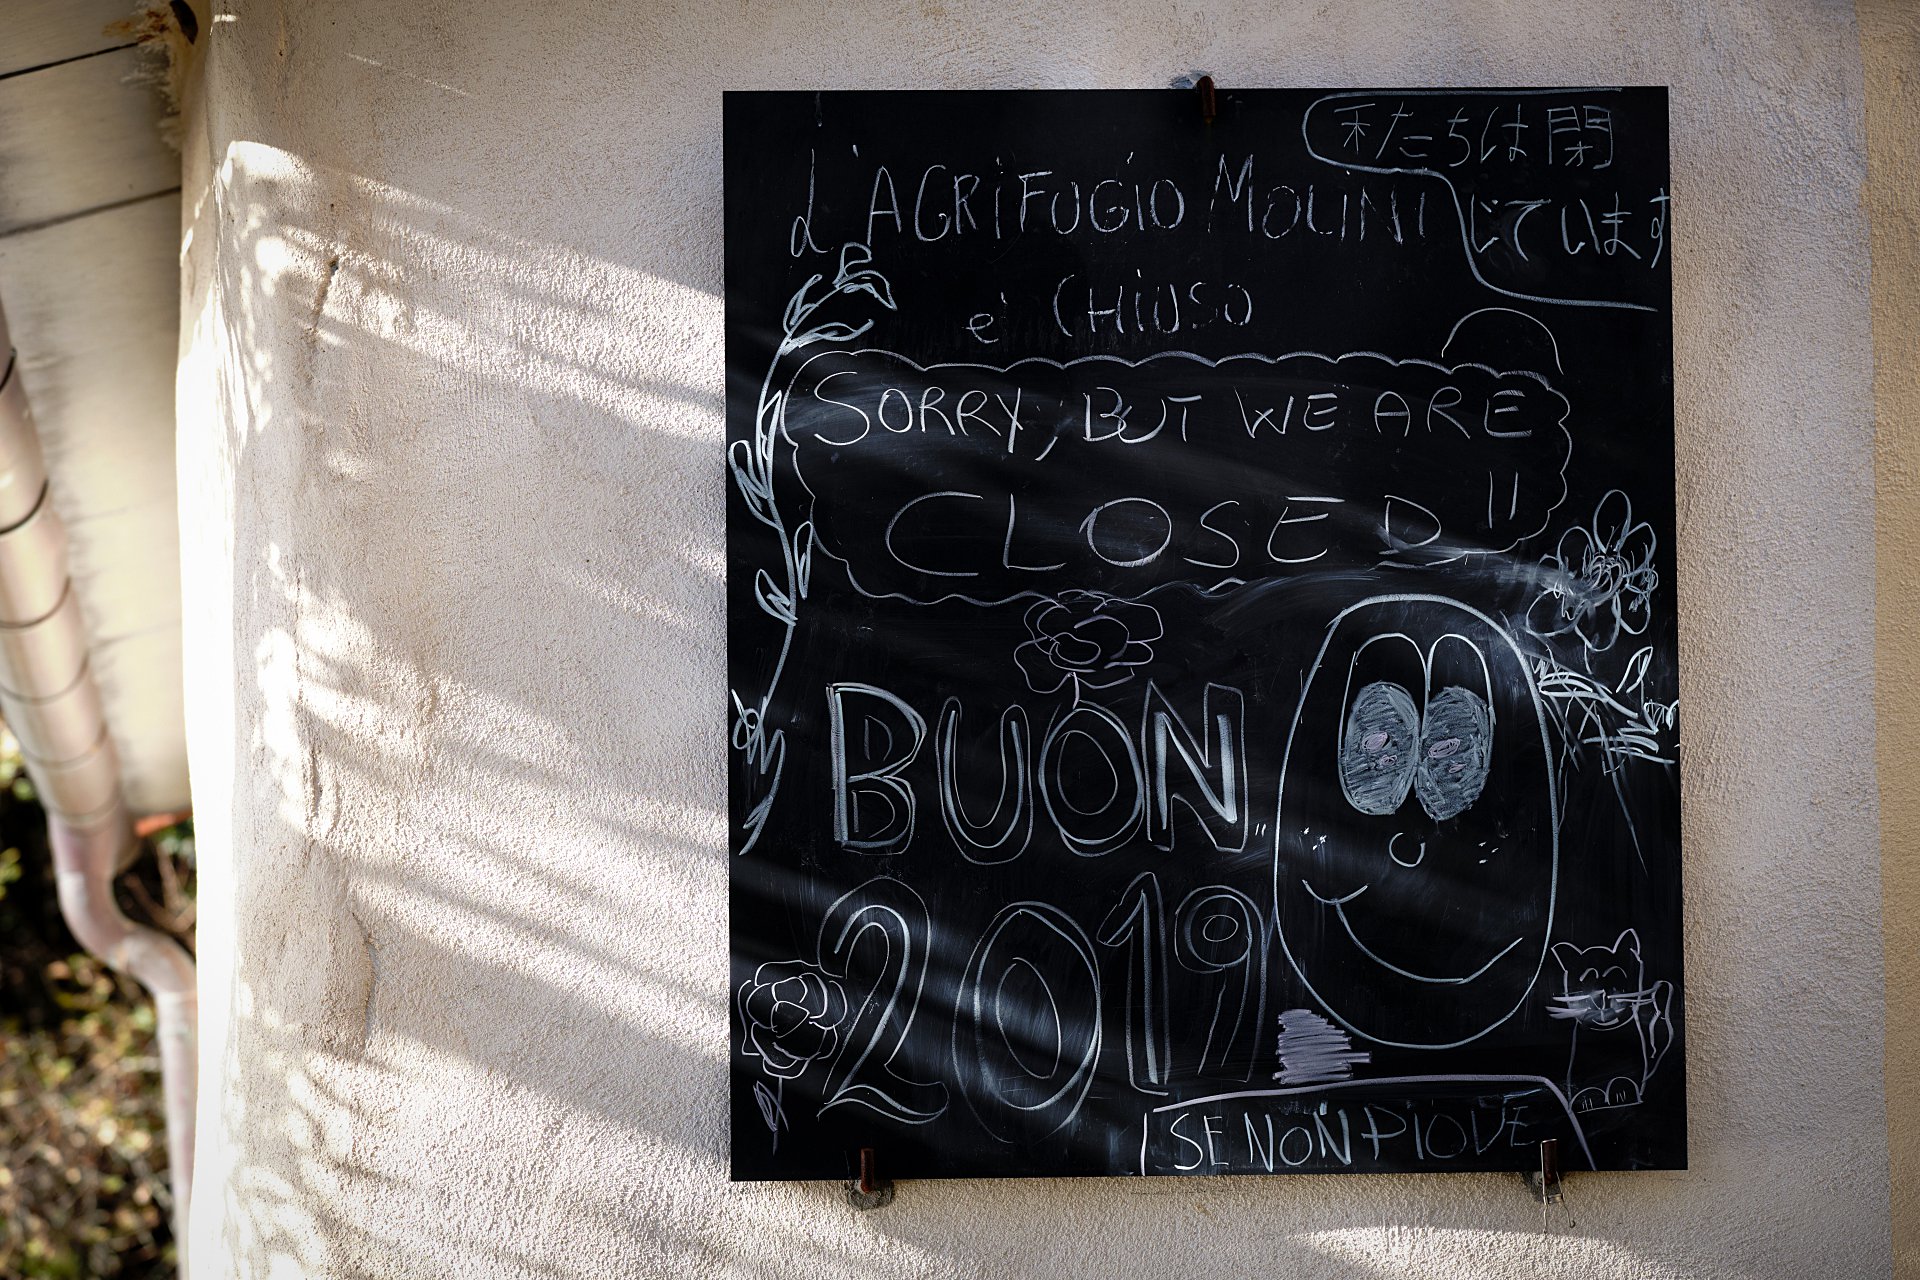 私たちは閉
じています
L'AGRIFUGIO MOLINI
e' CHIUSO
SORRY, BUT WE ARE
CLOSED !!
BUON
2019
SE NON PIOVE